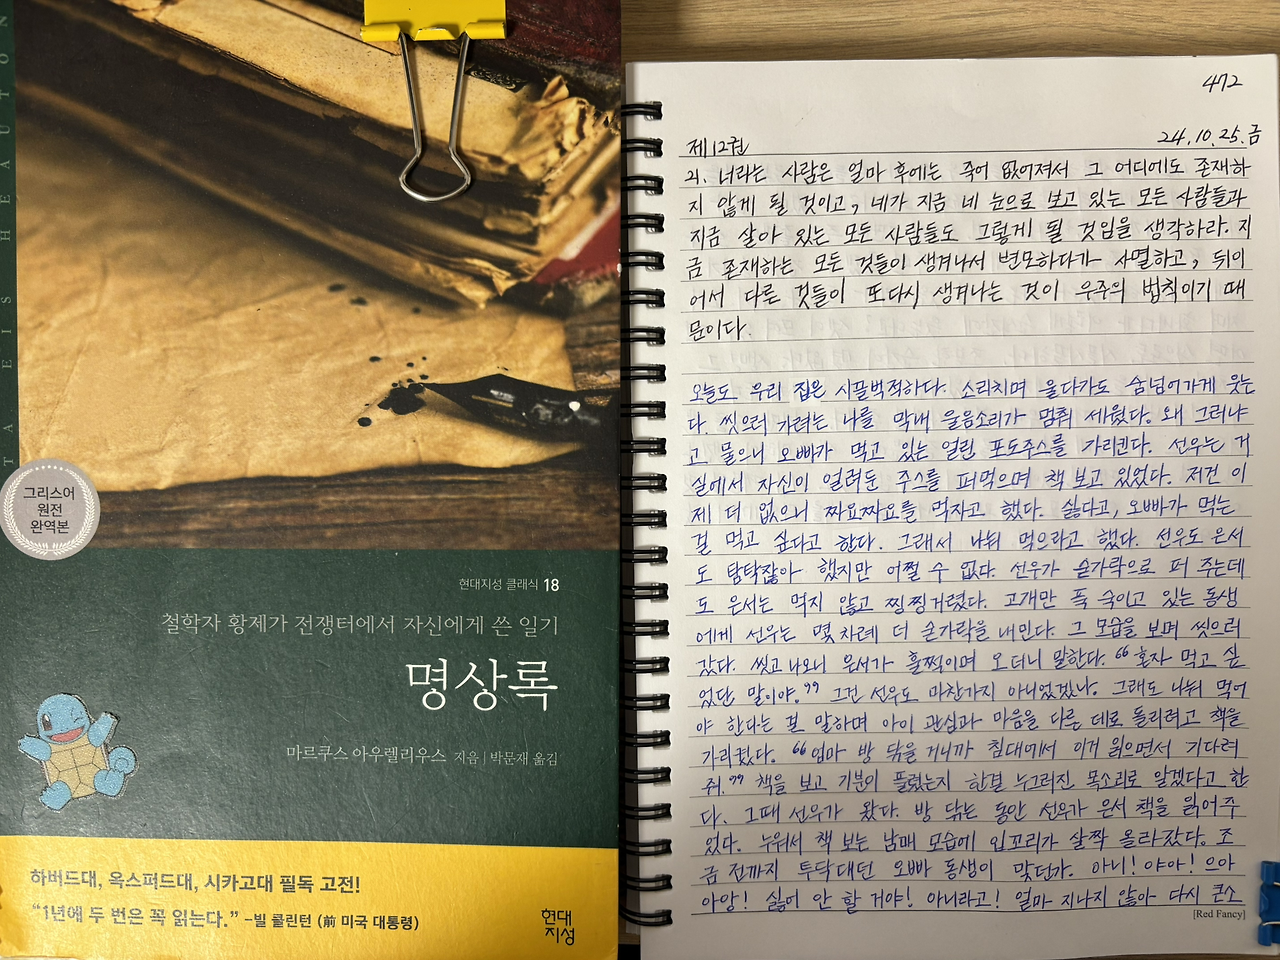 TA EIS HEAUTON
그리스어
원전
완역본
현대지성 클래식 18
철학자 황제가 전쟁터에서 자신에게 쓴 일기
명상록
마르쿠스 아우렐리우스 지음 | 박문재 옮김
하버드대, 옥스퍼드대, 시카고대 필독 고전!
“1년에 두 번은 꼭 읽는다.” –빌 클린턴 (前 미국 대통령)
현대
지성
472
제12권
24.10.25.금
21. 너라는 사람은 얼마 후에는 죽어 없어져서 그 어디에도 존재하
지 않게 될 것이고, 네가 지금 네 눈으로 보고 있는 모든 사람들과
지금 살아 있는 모든 사람들도 그렇게 될 것임을 생각하라. 지
금 존재하는 모든 것들이 생겨나서 변모하다가 사멸하고, 뒤이
어서 다른 것들이 또다시 생겨나는 것이 우주의 법칙이기 때
문이다.
오늘도 우리 집은 시끌벅적하다. 소리치며 울다가도 숨넘어가게 웃는
다. 씻으러 가려는 나를 막내 울음소리가 멈춰 세웠다. 왜 그러냐
고 물으니 오빠가 먹고 있는 얼린 포도주스를 가리킨다. 선우는 거
실에서 자신이 얼려둔 주스를 퍼먹으며 책 보고 있었다. 저건 이
제 더 없으니 짜요짜요를 먹자고 했다. 싫다고, 오빠가 먹는
걸 먹고 싶다고 한다. 그래서 나눠 먹으라고 했다. 선우도 은서
도 탐탁잖아 했지만 어쩔 수 없다. 선우가 숟가락으로 퍼 주는데
도 은서는 먹지 않고 찡찡거렸다. 고개만 푹 숙이고 있는 동생
에게 선우는 몇 차례 더 숟가락을 내민다. 그 모습을 보며 씻으러
갔다. 씻고 나오니 은서가 훌쩍이며 오더니 말한다. “혼자 먹고 싶
었단 말이야.” 그건 선우도 마찬가지 아니었겠나. 그래도 나눠 먹어
야 한다는 본 말하며 아이 관심과 마음을 다른 데로 돌리려고 책을
가리켰다. “엄마 방 닦을 거니까 침대에서 이거 읽으면서 기다려
줘.” 책을 보고 기분이 풀렸는지 한결 누그러진 목소리로 알겠다고 한
다. 그때 선우가 왔다. 방 닦는 동안 선우가 은서 책을 읽어주
었다. 누워서 책 보는 남매 모습에 입꼬리가 살짝 올라갔다. 조
금 전까지 투닥대던 오빠 동생이 맞던가. 아니! 야아! 으아
아앙! 싫어 안 할 거야! 아니라고! 얼마 지나지 않아 다시 큰소
[Red Fancy]